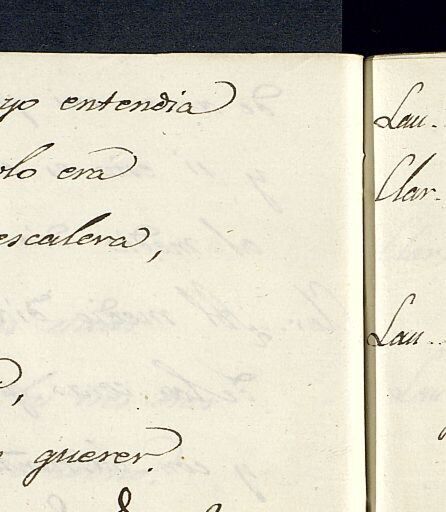 yo entendia
olo era
escalera,
querer.
Lau.
Clar.
Lau..